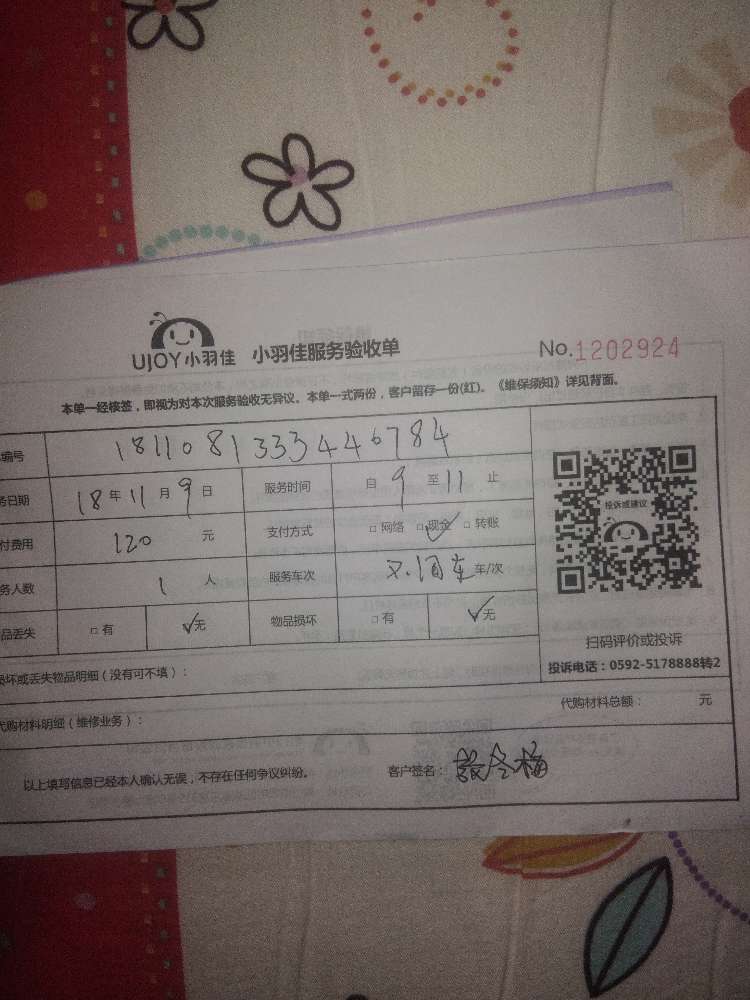 UJOY小羽佳 小羽佳服务验收单 No.1202924
本单一经核签，即视为对本次服务验收无异议。本单一式两份，客户留存一份(红)。《维保须知》详见背面。
编号 1811081333446784
务日期 18年11月9日 服务时间 自9至11止
付费用 120元 支付方式 □网络 □现金 □转账
务人数 1人 服务车次 车/次
品丢失 □有 ✓无 物品损坏 □有 ✓无
投诉或建议
扫码评价或投诉
投诉电话：0592-5178888转2
损坏或丢失物品明细（没有可不填）：
代购材料明细（维修业务）： 代购材料总额： 元
以上填写信息已经本人确认无误，不存在任何争议纠纷。 客户签名：